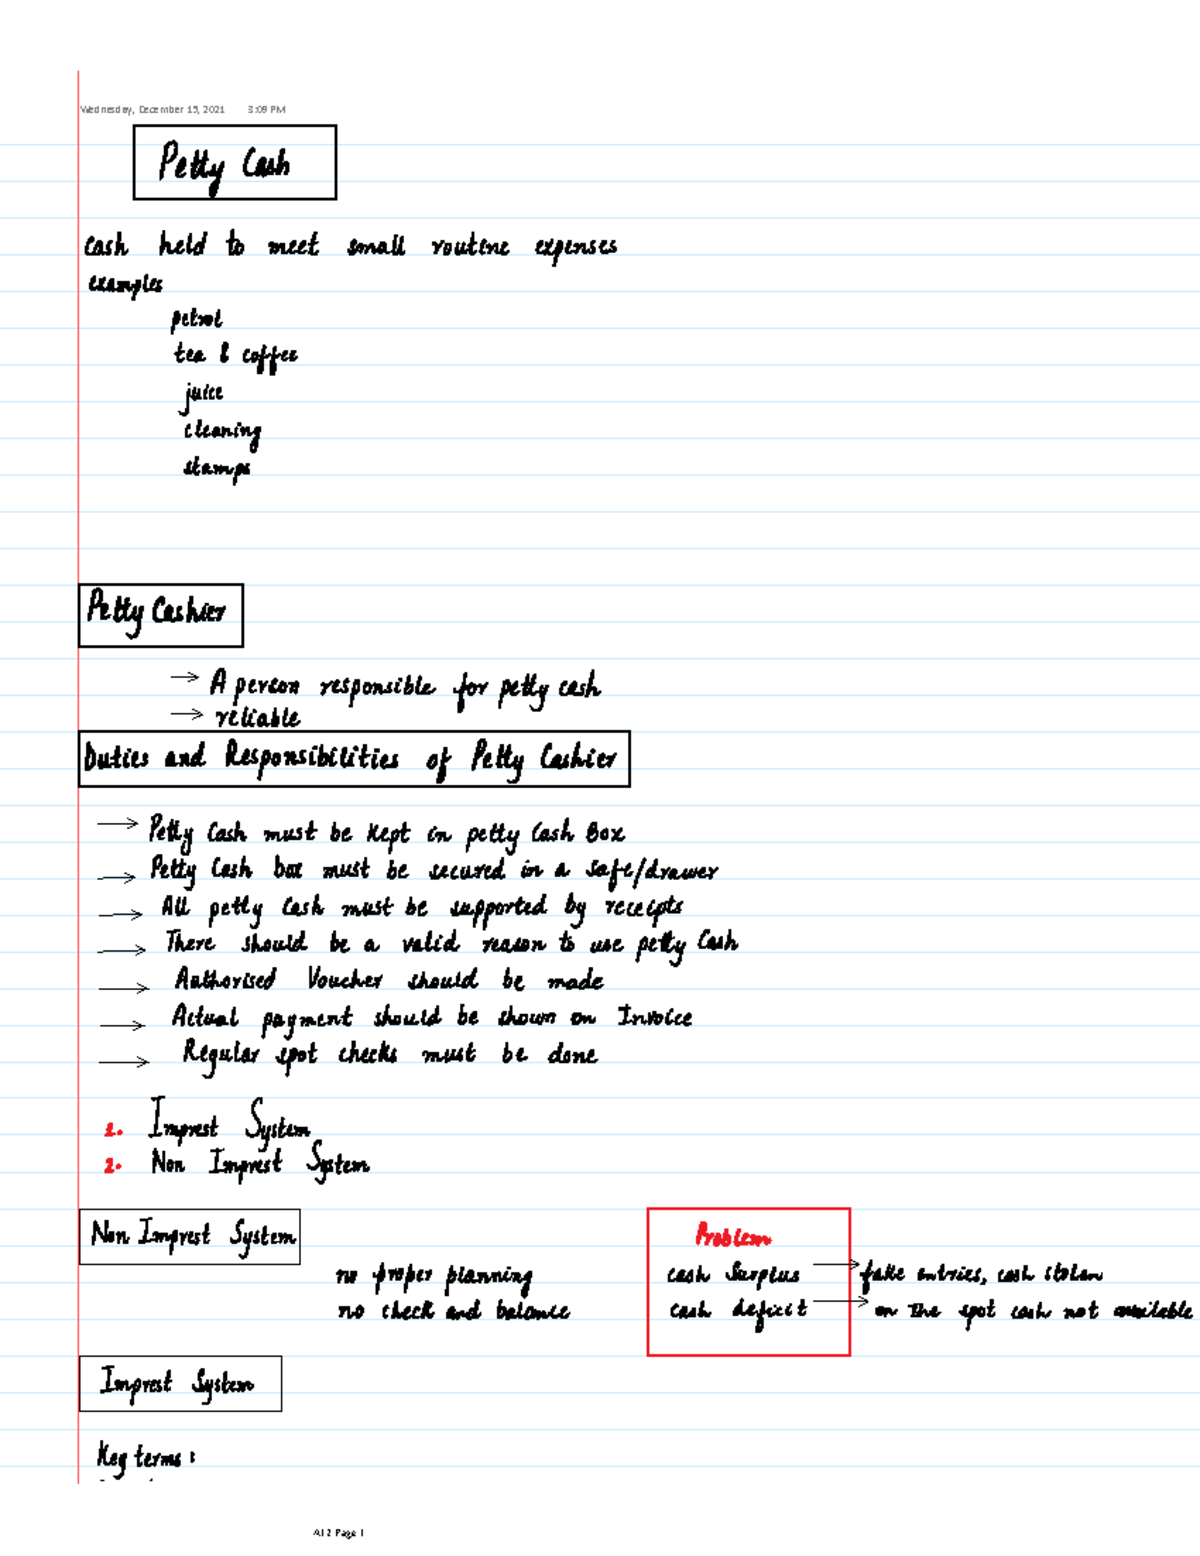 Wednesday, December 15, 2021 3:09 PM
Petty Cash
cash held to meet small routine expenses
examples
petrol
tea & coffee
juice
cleaning
stamps
Petty Cashier
→ A person responsible for petty cash
→ reliable
Duties and Responsibilities of Petty Cashier
→ Petty Cash must be Kept in petty Cash Box
→ Petty Cash box must be secured in a safe/drawer
→ All petty Cash must be supported by receipts
→ There should be a valid reason to use petty Cash
→ Authorised Voucher should be made
→ Actual payment should be shown on Invoice
→ Regular spot checks must be done
1. Imprest System
2. Non Imprest System
Non Imprest System
no proper planning
no check and balance
Problem
cash Surplus → fake entries, cash stolen
cash deficit → on the spot cash not available
Imprest System
Key terms :
A12 Page 1